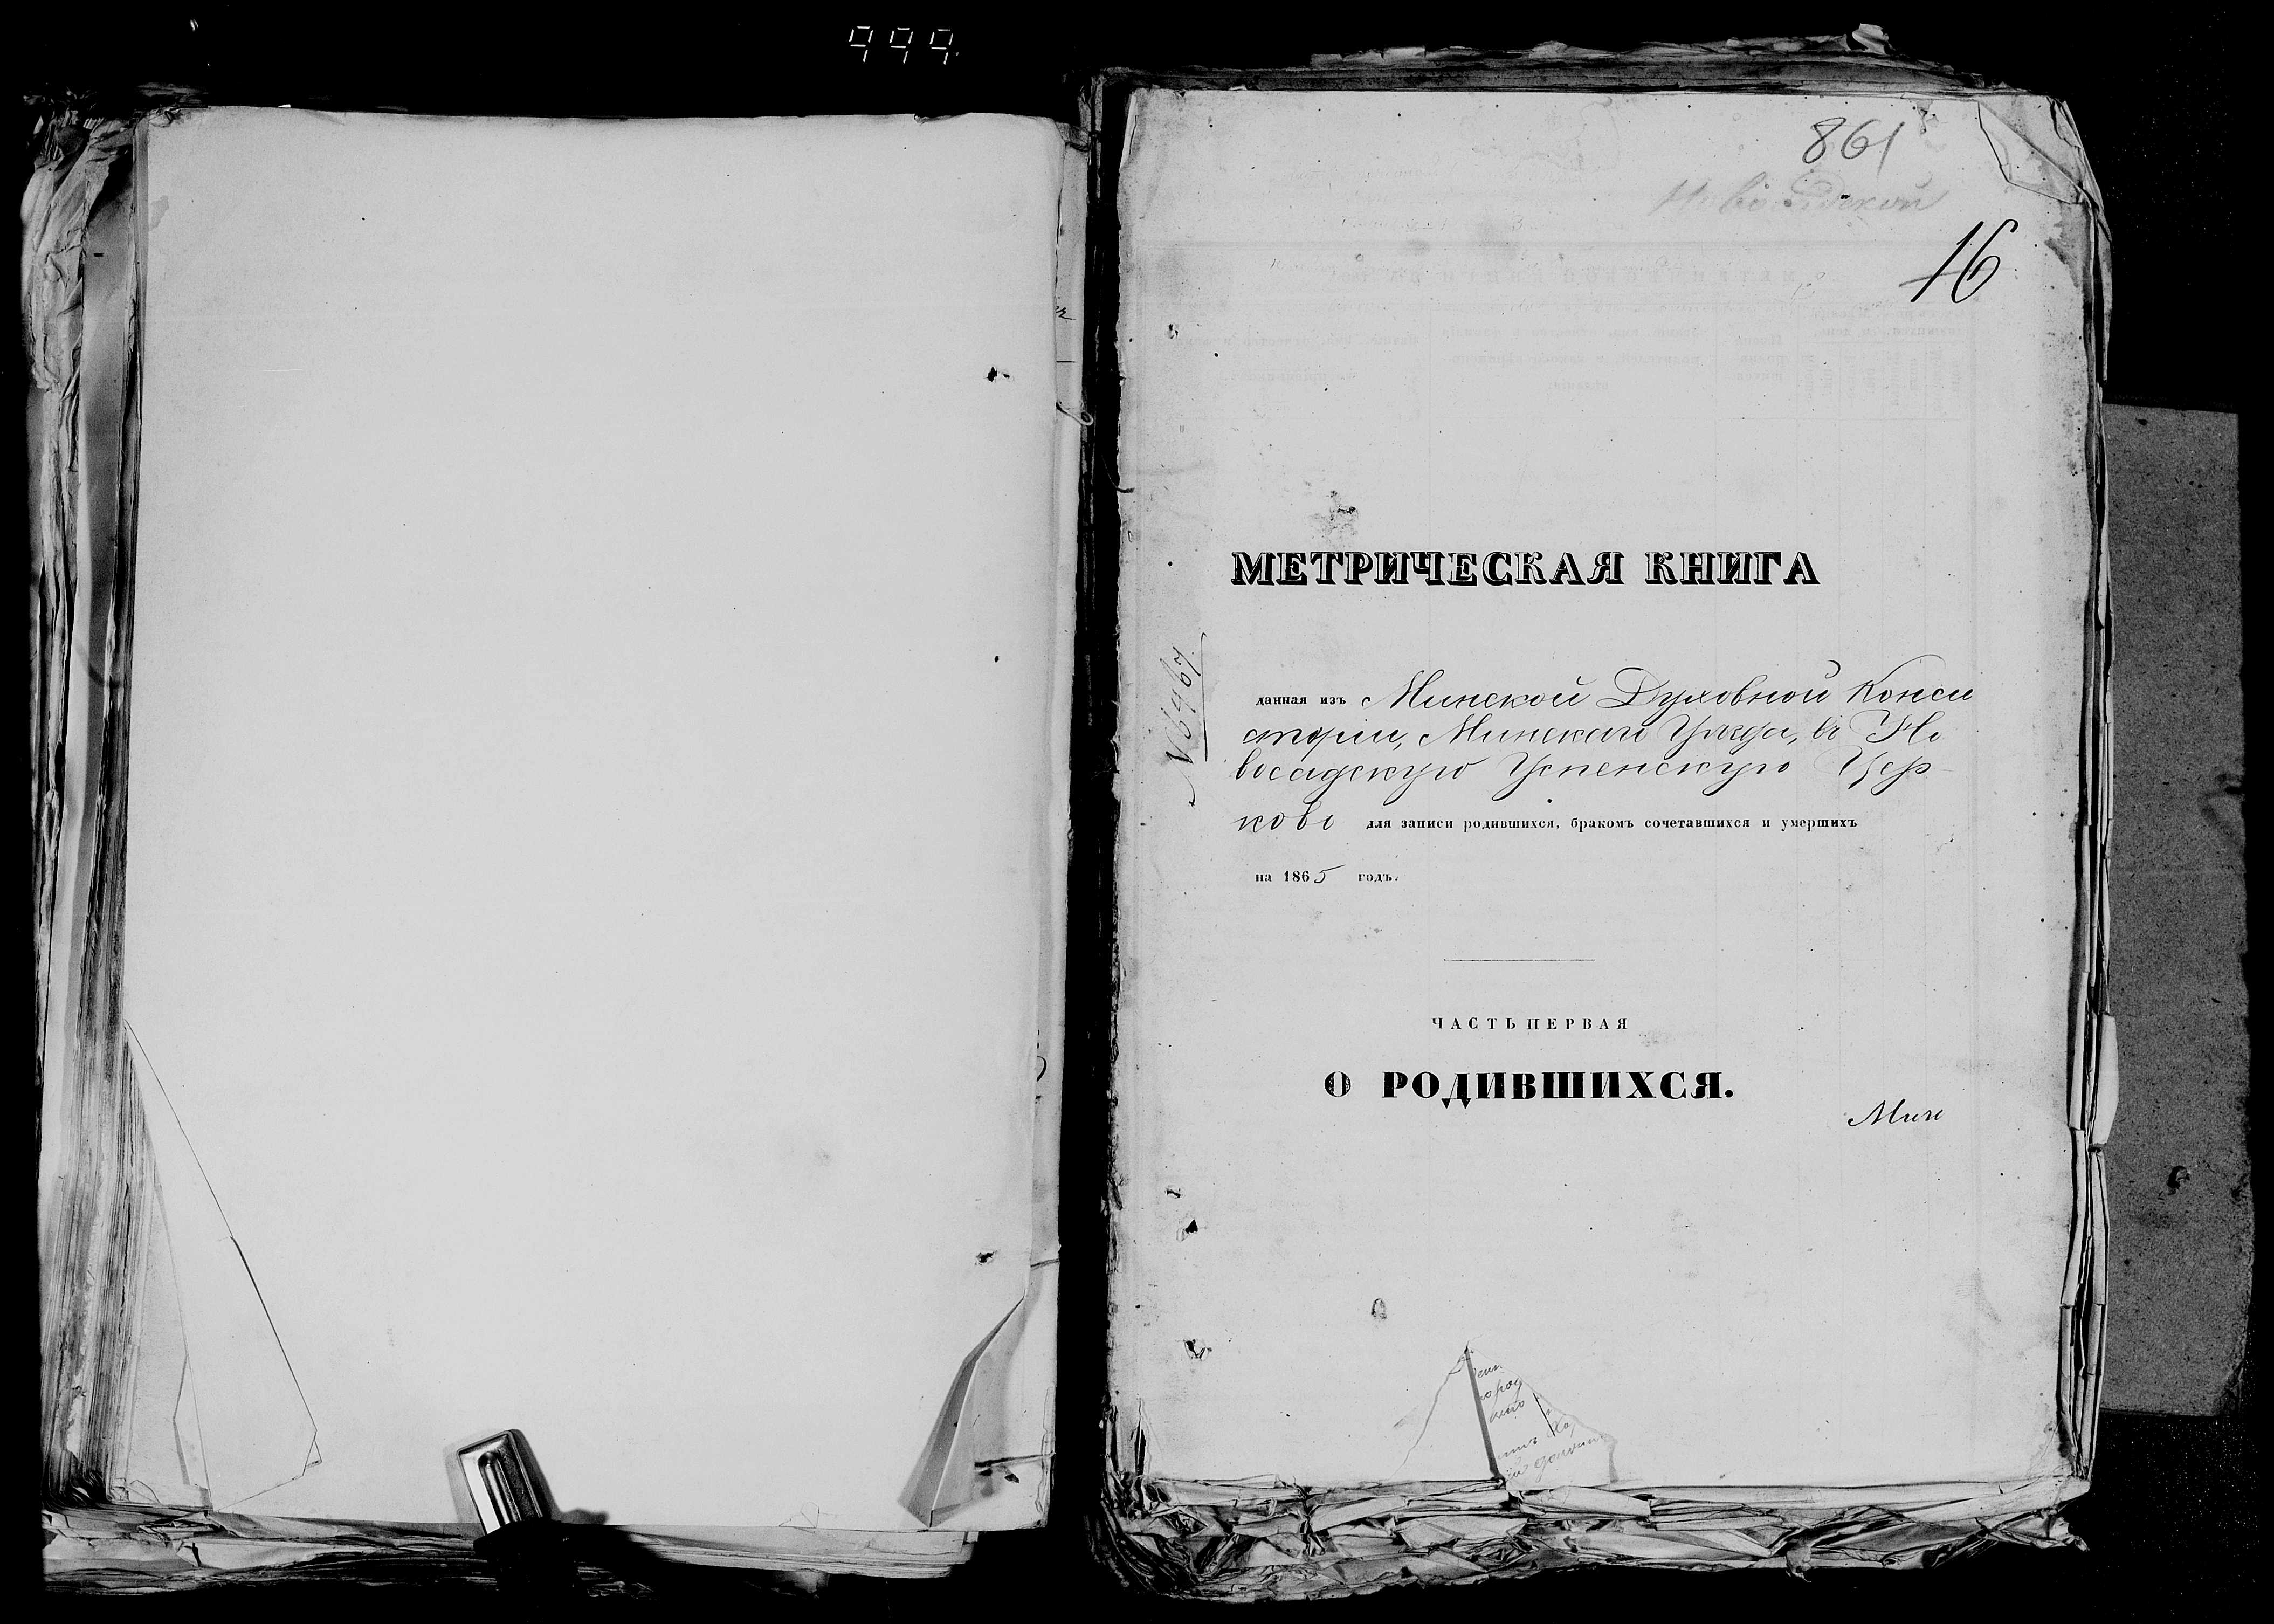 999.
861
16
МЕТРИЧЕСКАЯ КНИГА
данная изъ Минской Духовной Конси
сторіи, Минскаго Уѣзда, въ Но
восадскую Успенскую Цер-
ковь для записи родившихся, бракомъ сочетавшихся и умершихъ
на 1865 годъ.
ЧАСТЬ ПЕРВАЯ
О РОДИВШИХСЯ.
Мин